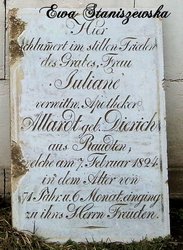 Ewa Staniszewska
Hier
schlumert im stillen Frieden
des Grabes, Frau
Juliane
verwittw. Apotheker
Allardt geb. Dierich
aus Raudten,
welche am 7. Februar 1824
in dem Alter von
71 Jahr. u. 6 Monat. einging
zu ihns Herrn Freuden.